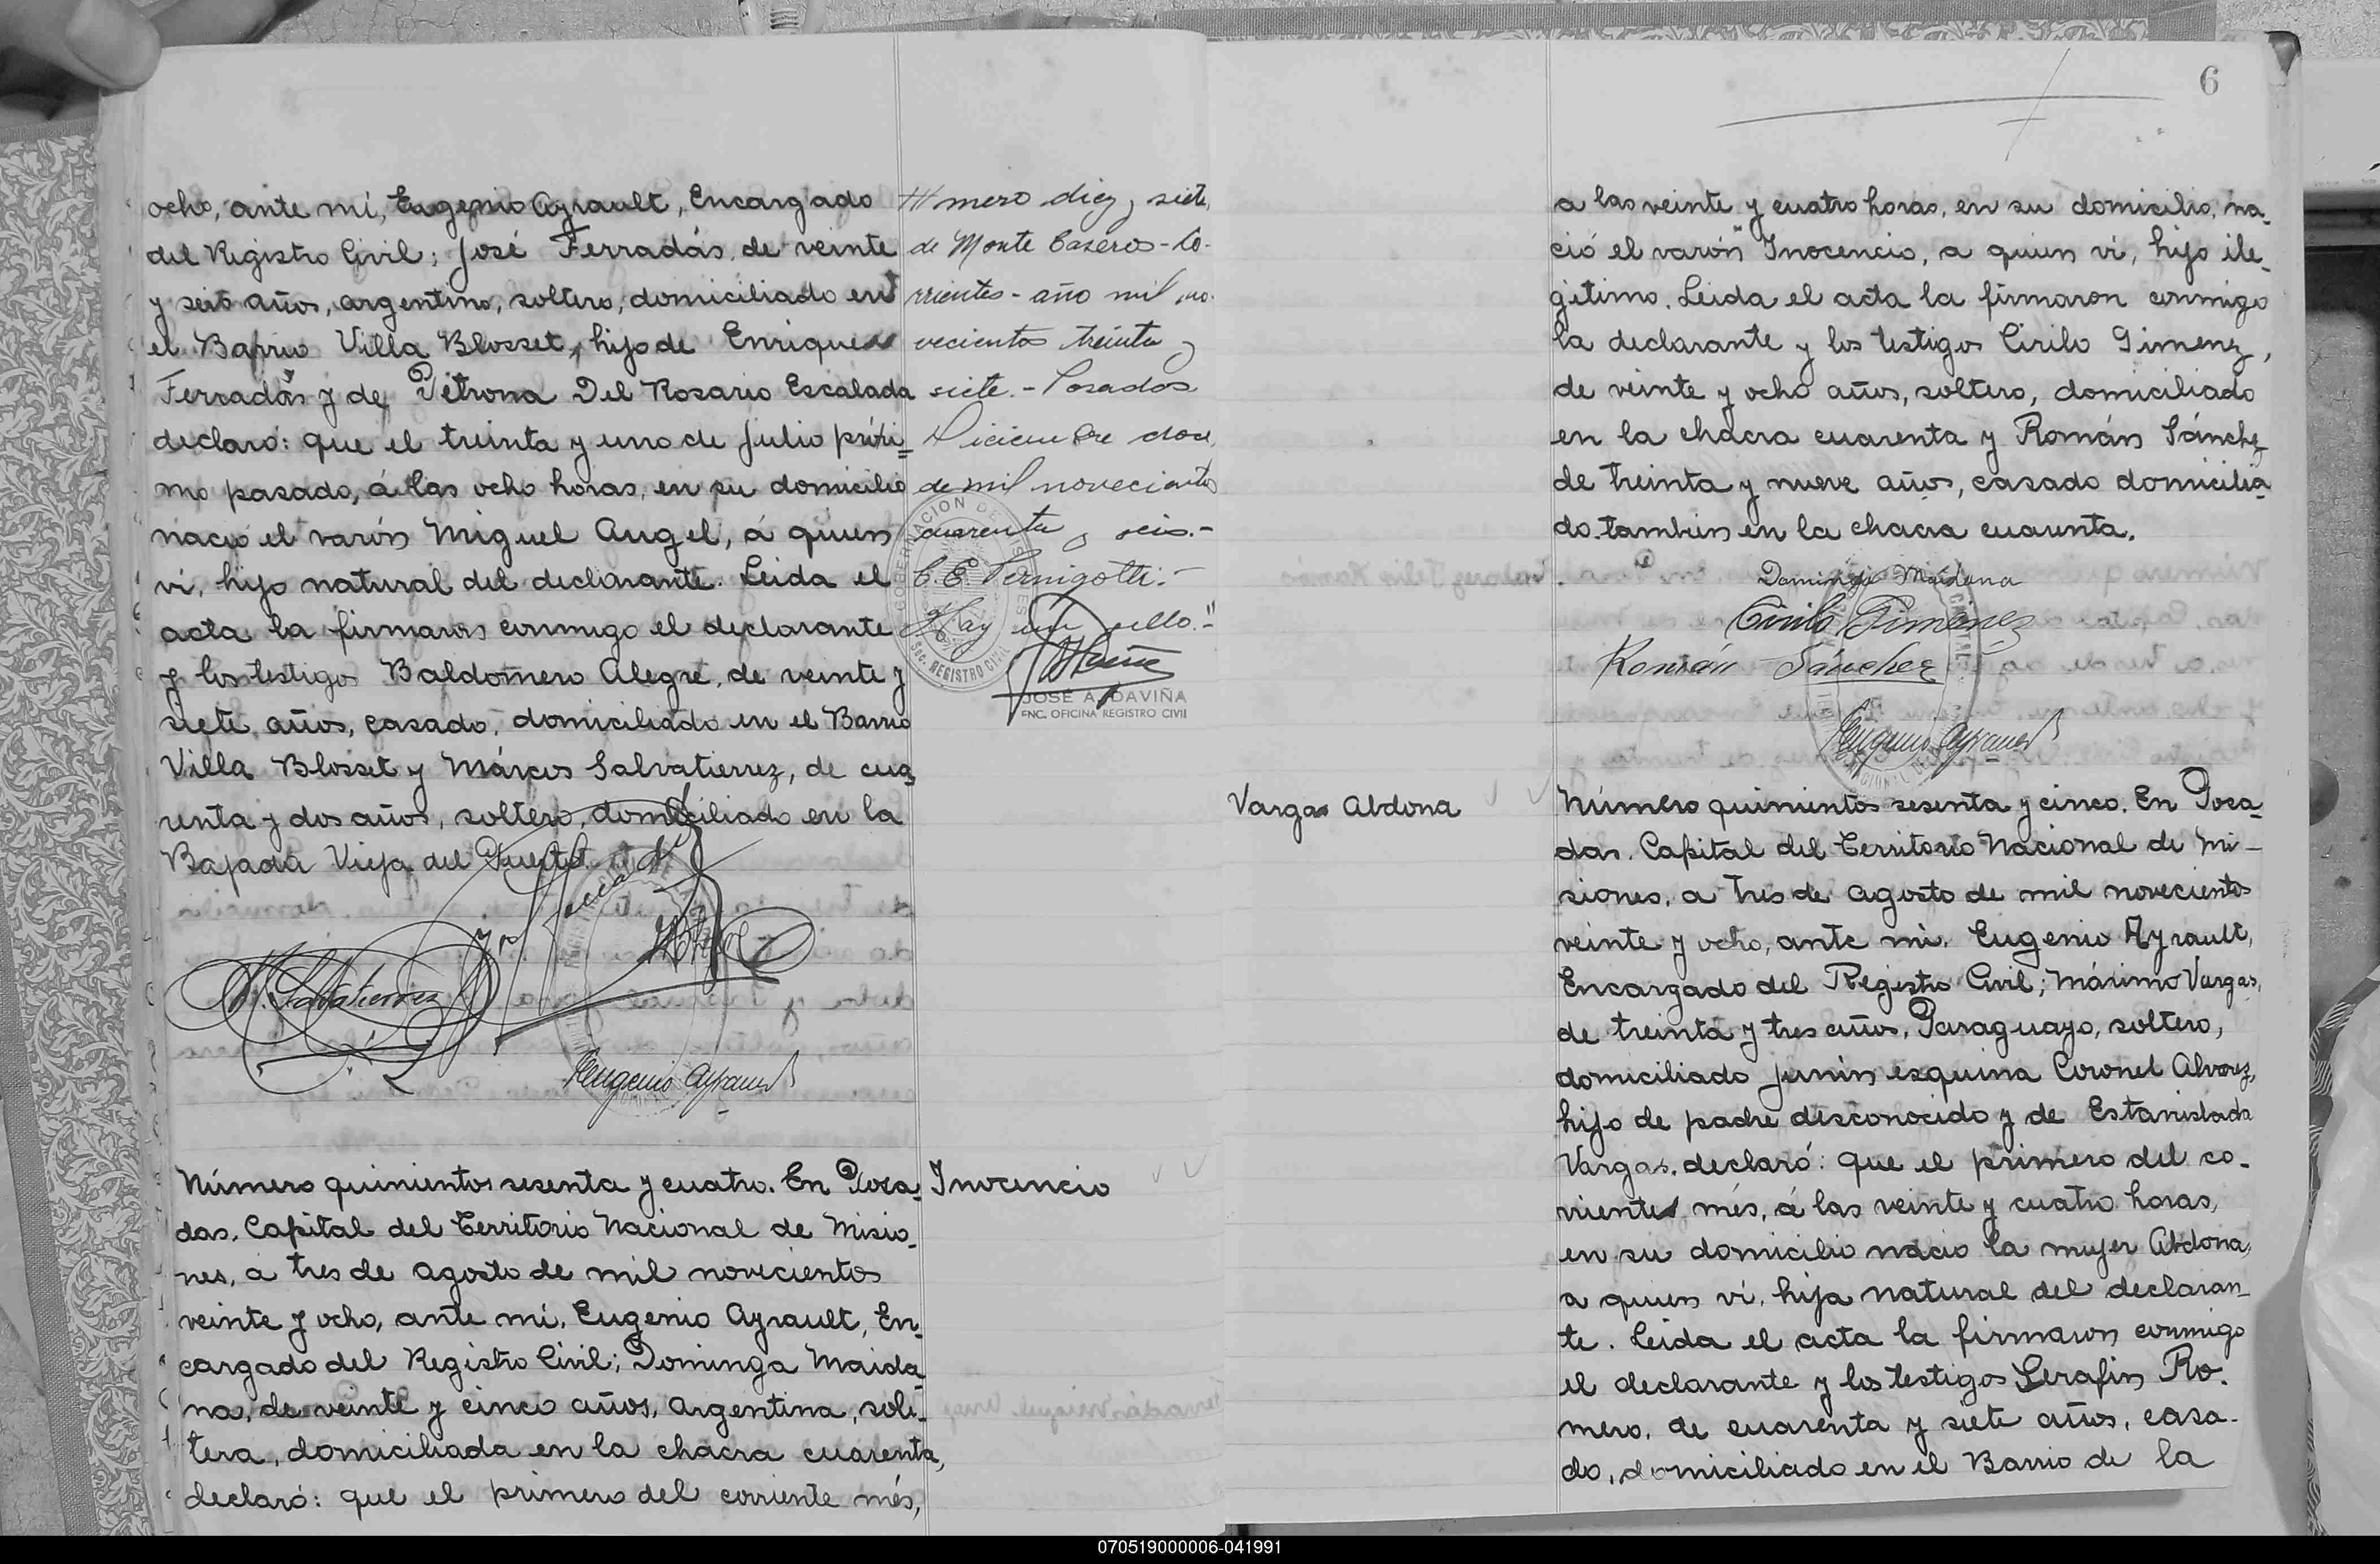 ocho, ante mi, Eugenio Ayrault, Encargado
del Registro Civil; José Ferradás, de veinte
y seis años, argentino, soltero, domiciliado en
el Barrio Villa Blosset, hijo de Enrique
Ferradás y de Petrona Del Rosario Escalada
declaró: que el treinta y uno de Julio próxi=
mo pasado, á las ocho horas, en su domicilio
nació el varón Miguel Angel, á quien
vi, hijo natural del declarante. Leida el
acta la firmaron conmigo el declarante
y los testigos Baldomero Alegre, de veinte y
siete años, casado, domiciliado en el Barrio
Villa Blosset y Márcos Salvatierrez, de cua
renta y dos años, soltero, domiciliado en la
Bajada Vieja del Puerto.
M. Salvatierrez
Eugenio Ayrault
Número quinientos sesenta y cuatro. En Posa-
das, Capital del Territorio Nacional de Misio-
nes, a tres de agosto de mil novecientos
veinte y ocho, ante mi, Eugenio Ayrault, En-
cargado del Registro Civil; Dominga Maida-
na, de veinte y cinco años, argentina, sol-
tera, domiciliada en la chacra cuarenta,
declaró: que el primero del corriente més,
mero diez y siete,
de Monte Caseros-Co-
rrientes - año mil no-
vecientos treinta y
siete.- Posadas
Diciembre doce
de mil novecientos
cuarenta y seis.-
C. E. Pernigotti.-
Hay un sello.-"
SEC. REGISTRO CIVIL
JOSÉ A. DAVIÑA
ENC. OFICINA REGISTRO CIVIL
Inocencio
6
a las veinte y cuatro horas, en su domicilio, na-
ció el varón Inocencio, a quien vi, hijo ile-
gitimo. Leida el acta la firmaron conmigo
la declarante y los testigos Cirilo Gimenez,
de veinte y ocho años, soltero, domiciliado
en la chacra cuarenta y Román Sánchez
de treinta y nueve años, casado domicilia
do tambien en la chacra cuarenta.
Dominga Maidana
Cirilo Gimenez
Román Sánchez
Eugenio Ayrault
Vargas Abdona
Número quinientos sesenta y cinco. En Posa-
das, Capital del Territorio Nacional de Mi-
siones, a tres de agosto de mil novecientos
veinte y ocho, ante mi, Eugenio Ayrault,
Encargado del Registro Civil; Máximo Vargas,
de treinta y tres años, Paraguayo, soltero,
domiciliado Junin esquina Coronel Alvarez,
hijo de padre desconocido y de Estanislada
Vargas, declaró: que el primero del co-
rriente més, á las veinte y cuatro horas,
en su domicilio nació la mujer Abdona,
a quien vi, hija natural del declaran-
te. Leida el acta la firmaron conmigo
el declarante y los testigos Serafin Ro-
mero, de cuarenta y siete años, casa-
do, domiciliado en el Barrio de la
070519000006-041991